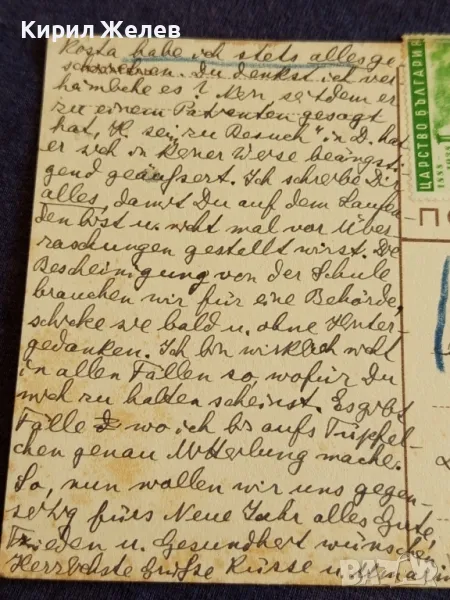 Кирил Желев
Kosta habe ich stets alles ge-
schrieben. Du denkst ich ver-
heimliche es? Nein, seitdem er
zu einem Patienten gesagt
hat, "H. sei zu Besuch" in D. hat
er sich in keiner Weise beängsti-
gend geäußert. Ich schreibe Dir
alles, damit Du auf dem Laufen-
den bist u. nicht mal vor Über-
raschungen gestellt wirst. Die
Bescheinigung von der Schule
brauchen wir für eine Behörde,
schicke sie bald u. ohne Hinter-
gedanken. Ich bin wirklich nicht
in allen Fällen so, wofür Du
mich zu halten scheinst. Es gibt
Fälle wo ich bis aufs Tüpfel-
chen genau Mitteilung mache.
So, nun wollen wir uns gegen-
seitig fürs Neue Jahr alles Gute,
Frieden u. Gesundheit wünschen
Herzlichste Grüße Küsse u.
ЦАРСТВО БЪЛГАРИЯ